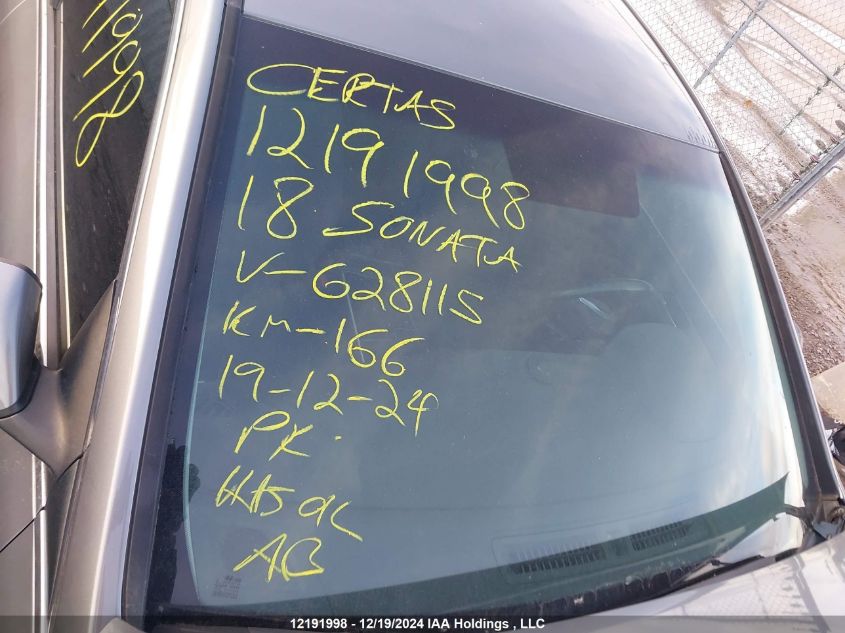 CERTAS
1219 1998
18 SONATA
V-628115
KM-166
19-12-24
PK
AB
1998
12191998 - 12/19/2024 IAA Holdings , LLC